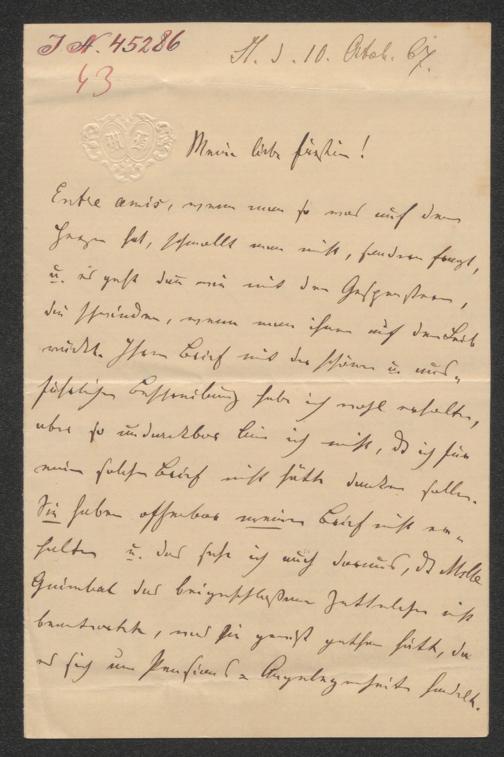 I. N. 45286
43
St. d. 10. Octob. 67.
Meine liebe Fürstin!
Entre amis, wenn man so was auf dem
Herzen hat, schmollt man nicht, sondern fragt,
u. es geht dann wie mit den Gespenstern,
die schwinden, wenn man ihnen auf den Leib
rückt. Ihren Brief mit der schönen u. aus-
führlichen Beschreibung habe ich wohl erhalten,
aber so undankbar bin ich nicht, daß ich für
einen solchen Brief nicht hätte danken sollen.
Sie haben offenbar meinen Brief nicht er-
halten u. das sehe ich auch daraus, daß Mslle
Guimbal das beigeschlossene Zettelchen nicht
beantwortete, was sie gewiß gethan hätte, da
es sich um Pensions-Angelegenheiten handelt.